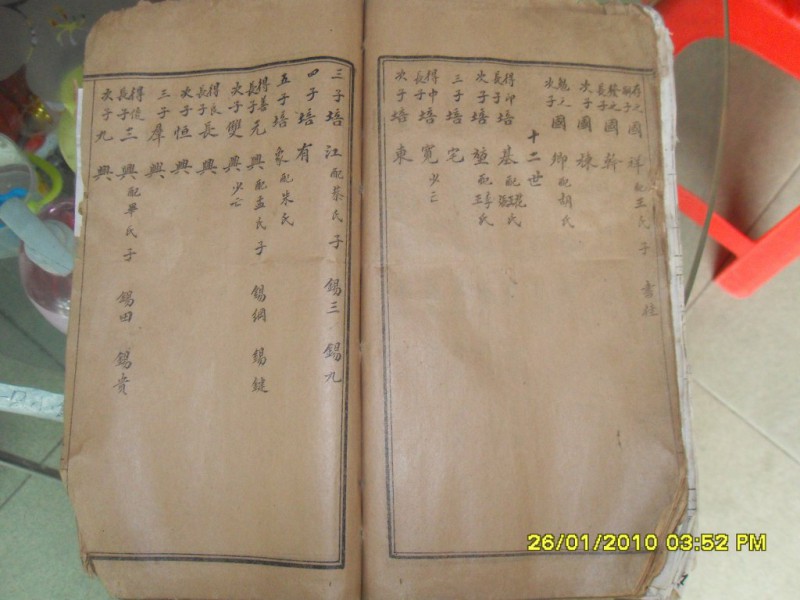 存之嗣子國祥配王氏子 書柱
發之長子國幹
次子國棟
魁之次子國卿配胡氏
十二世
得印長子培基配氏
次子培堃配氏
三子培宅
得申長子培寬少亡
次子培東
三子培江配蔡氏子 錫三 錫九
四子培有
五子培象配朱氏
得善長子元興配孟氏子 錫綱 錫鍵
次子雙興少亡
得良長子長興
次子恒興
三子羣興
得俊長子三興配畢氏子 錫田 錫貴
次子九興
26/01/2010 03:52 PM